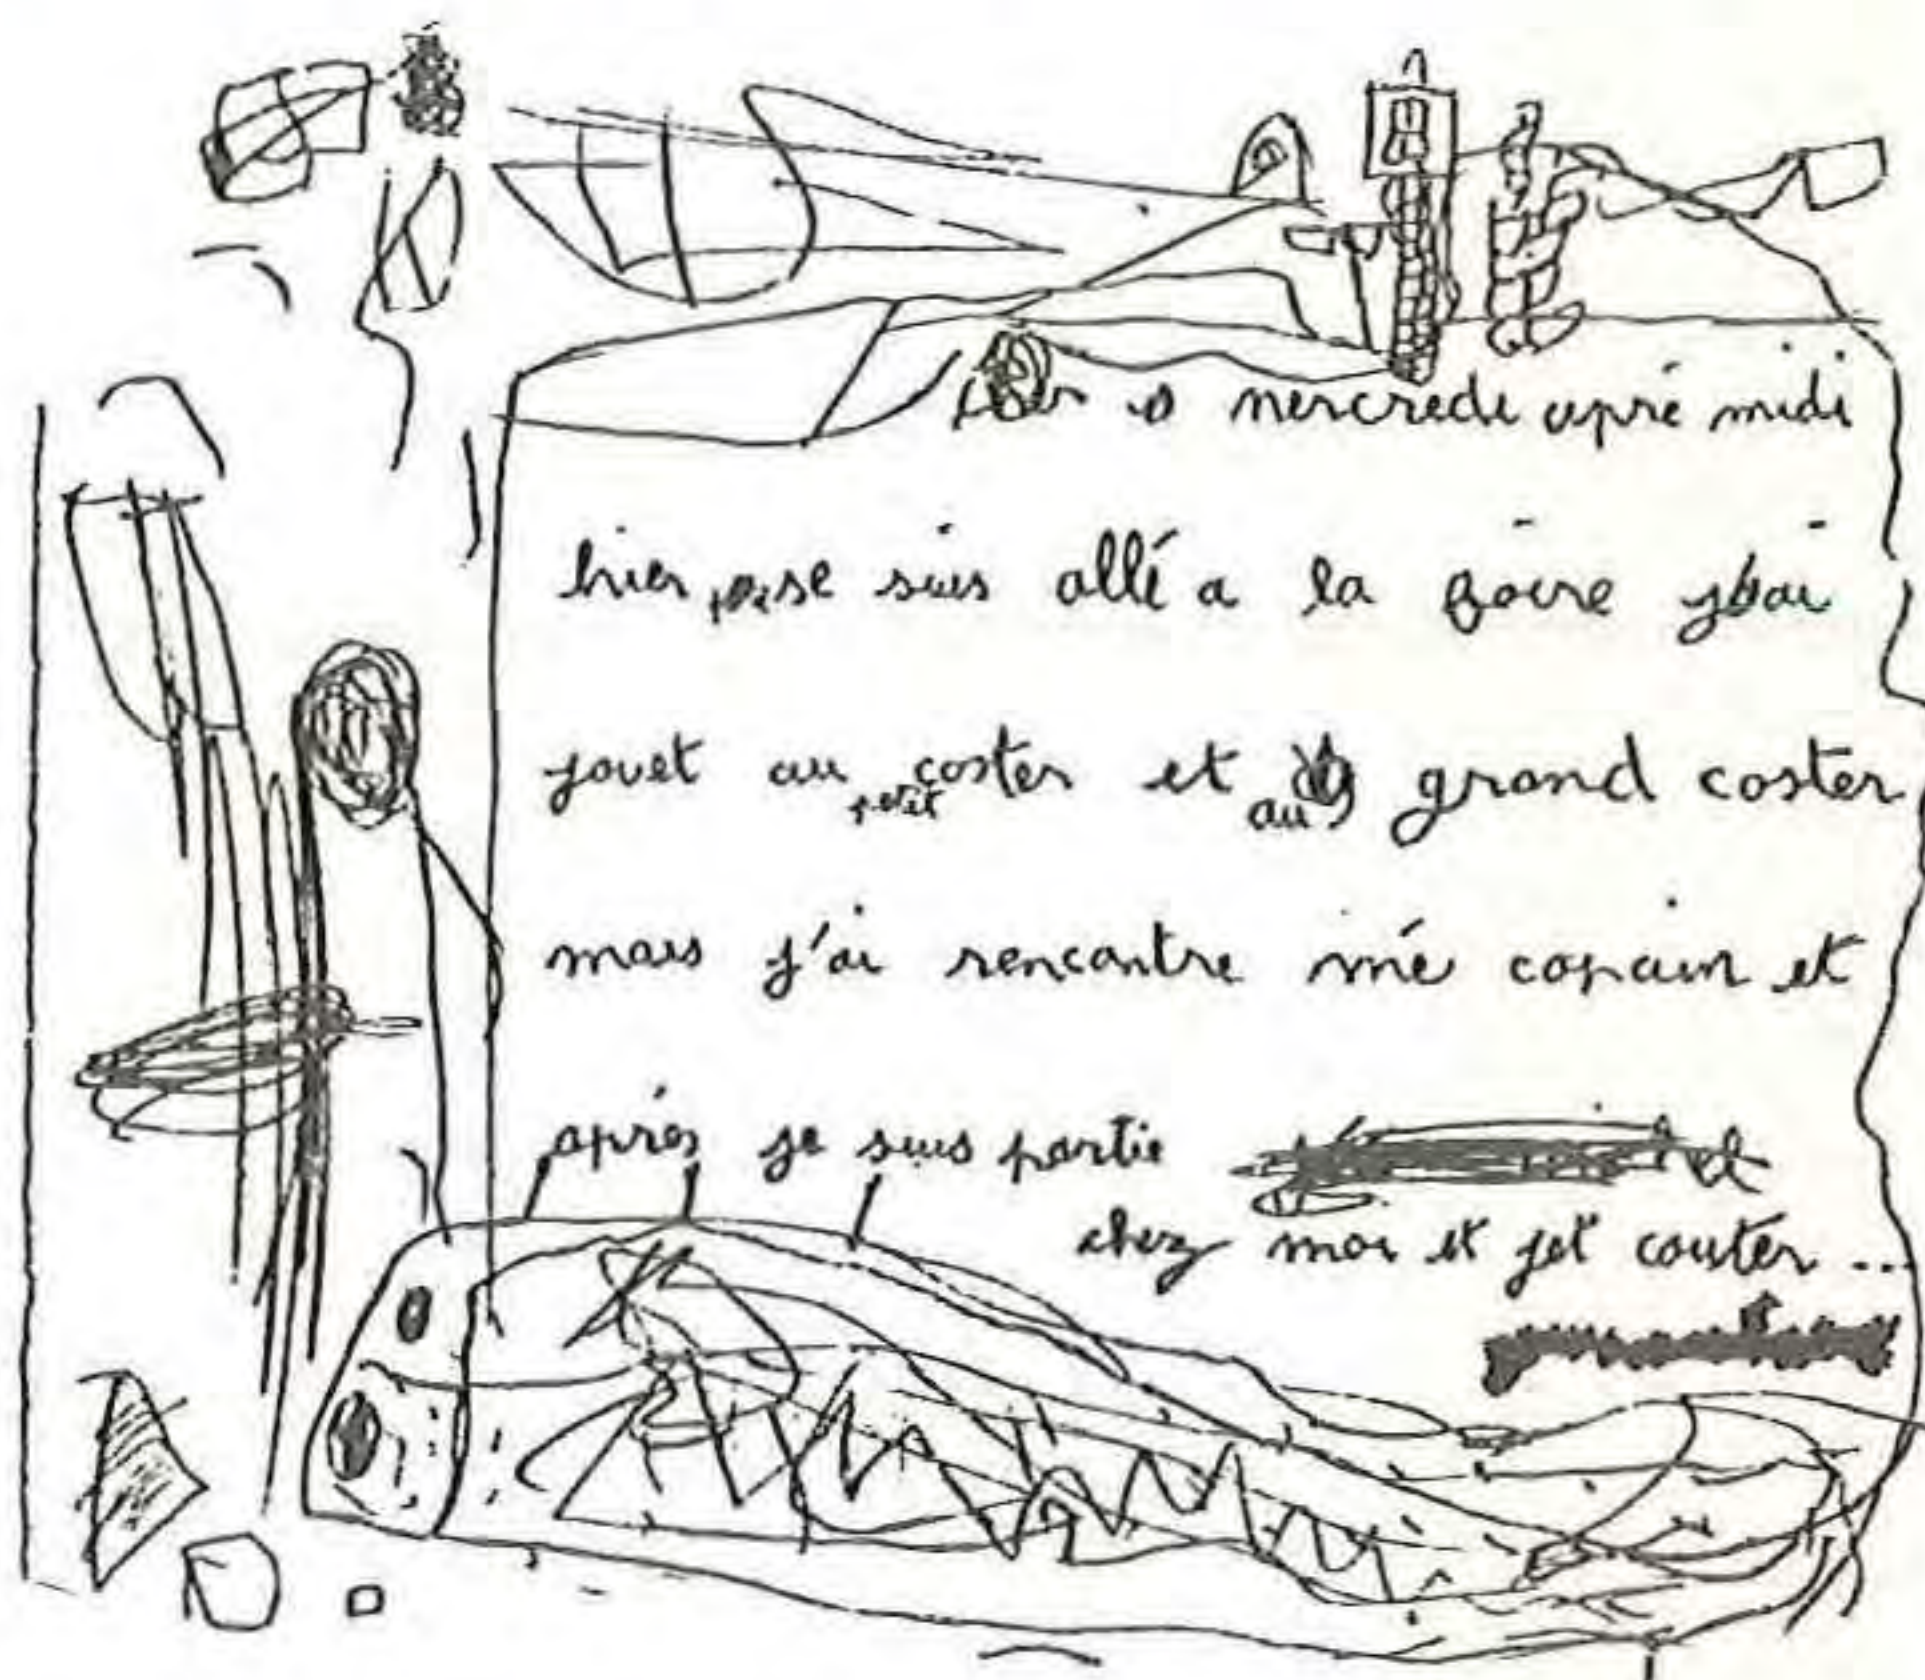 nercredi apré midi
hier se suis allé a la foire j'ai
jouet au petit coster et au grand coster
mais j'ai rencontre mé copain et
aprés je suis partie
chez moi et jet couter ...